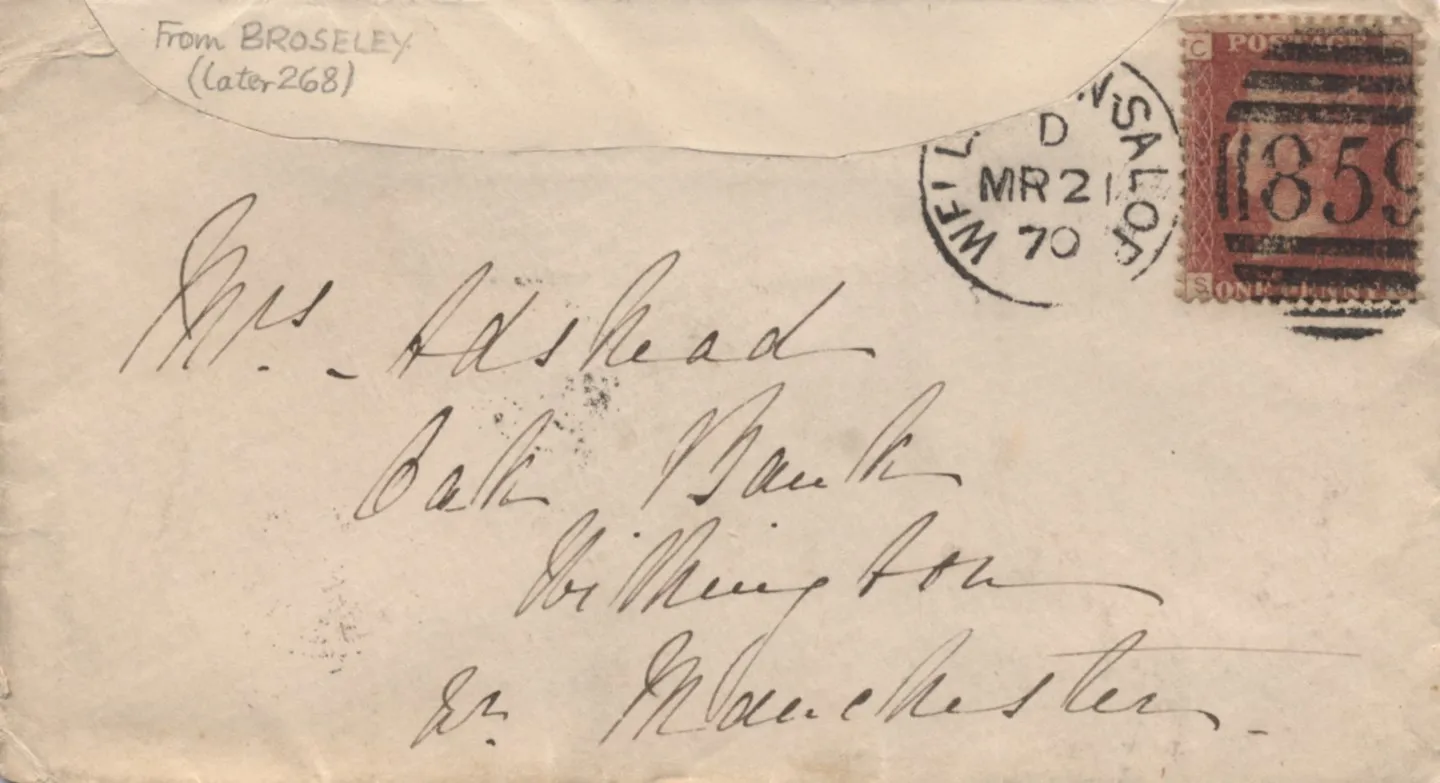 From BROSELEY
(later 268)
WELL N-SALOP
D
MR 21
70
C POSTAGE
859
S ONE PENNY
Mrs. Adshead
Oak Bank
Withington
Nr. Manchester.